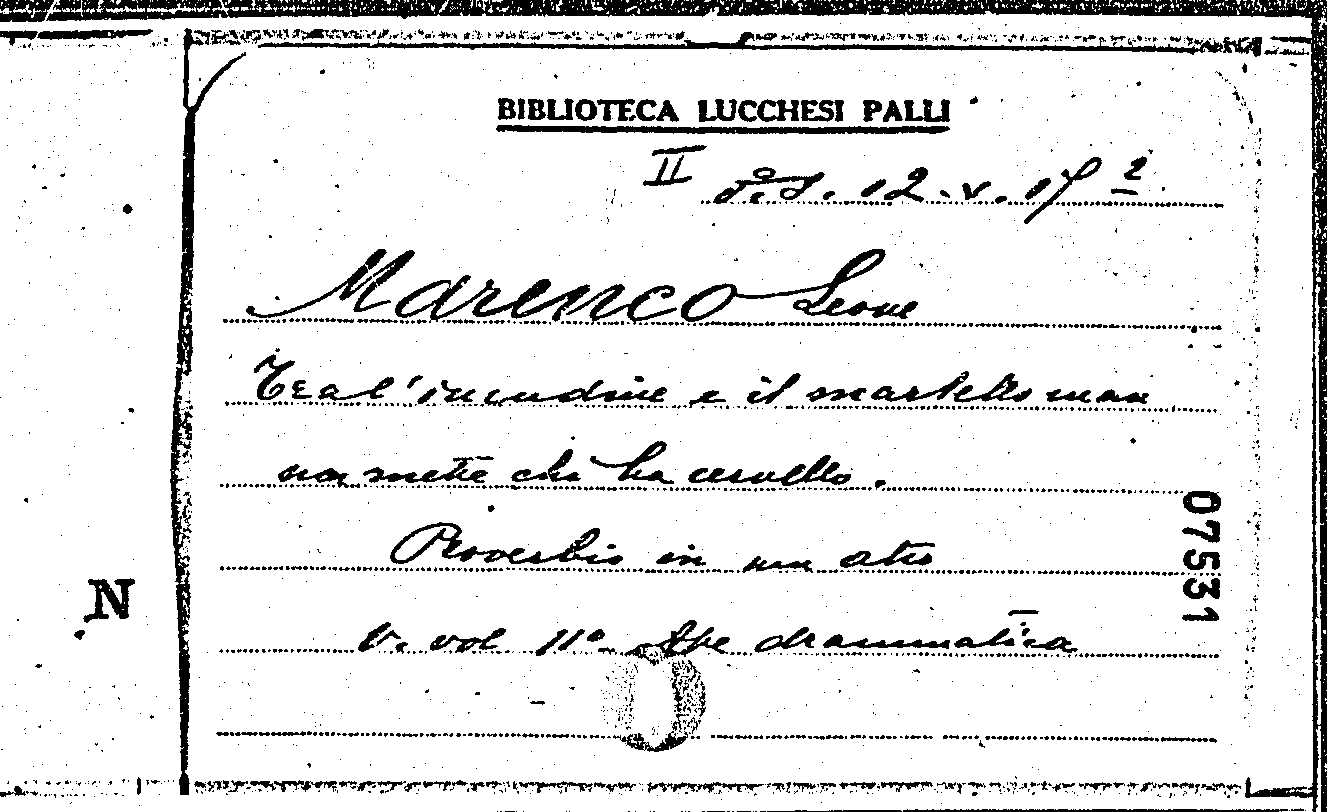 BIBLIOTECA LUCCHESI PALLI
II 12. v. 17 2
Marenco Leone
Tra l'incudine e il martello man
non mette chi ha cervello.
Proverbio in un atto
V. vol 11° Ape drammatica
07531
N